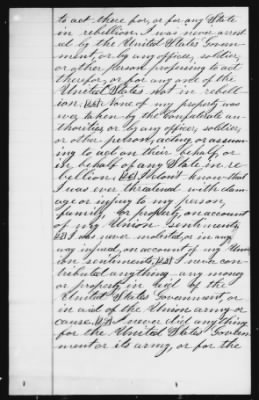 to act there for, or for any State
in rebellion. I was never arrest
ed by the United States Govern-
ment, or by any officer, soldier,
or other person professing to act
therefor, or for any one of the
United States not in rebell
ion. None of my property was
ever taken by the Confederate au-
thorities or by any officer, soldier,
or other person, acting or assum-
ing to act on their behalf, or
in behalf of any State in re-
bellion. I don't know that
I was ever threatened with dam-
age or injury to my person,
family, or property, on account
of my Union sentiments
I was never molested, or in any
way injured, on account of my Un
ion sentiments. I never con-
tributed anything any money
or property in aid of the
United States Government, or
in aid of the Union army or
cause. I never did anything
for the United States Govern-
ment or its army, or for the